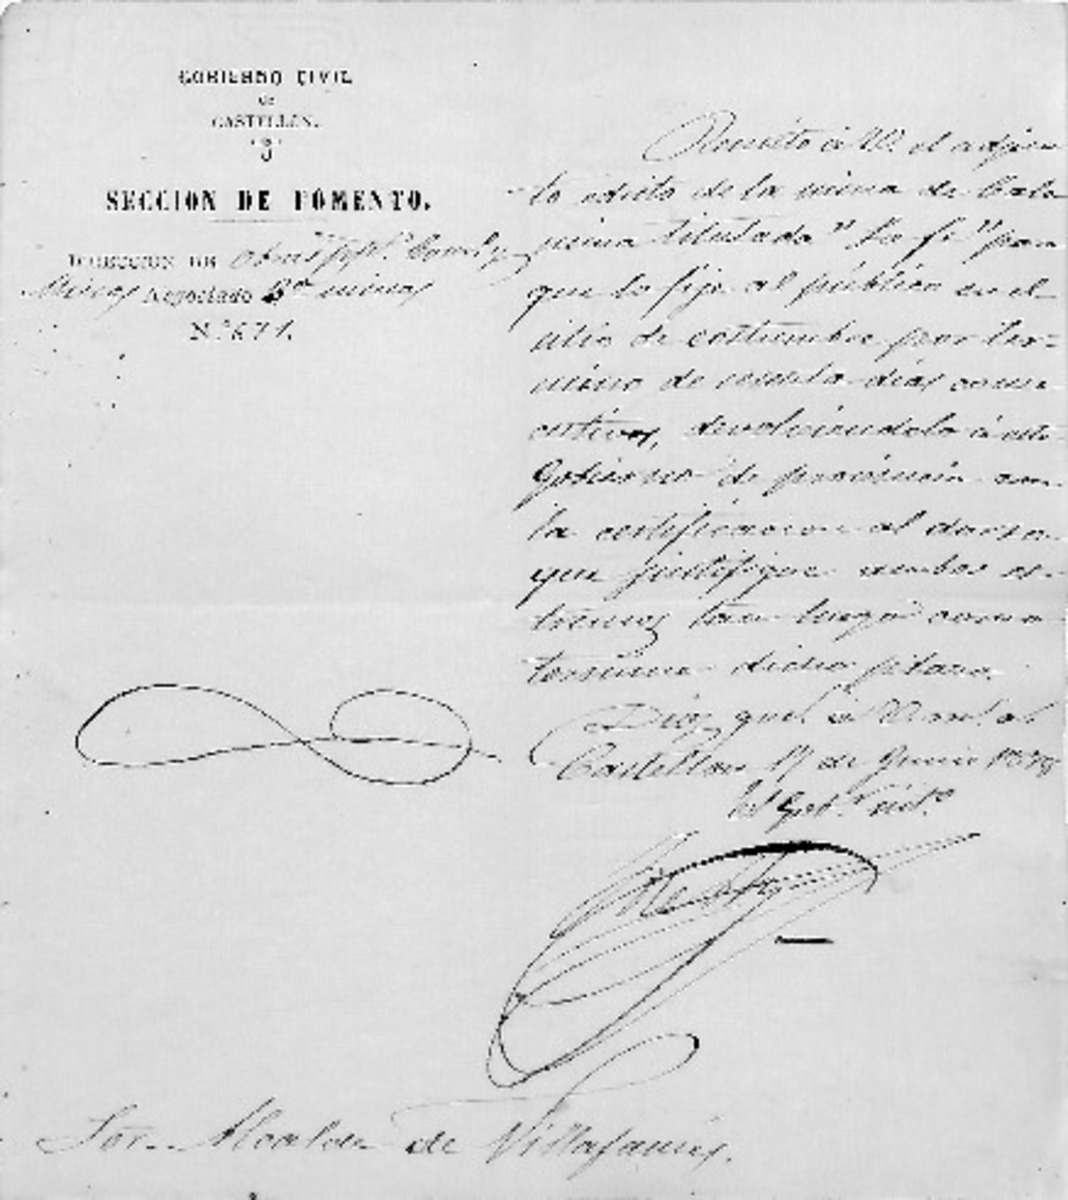 GOBIERNO CIVIL
de
CASTELLON.
SECCION DE FOMENTO.
DIRECCION DE Obras
Minas Negociado 3º minas
N.º 671.
Remito á V. el adjun
to edicto de la mina de Cala
mina titulada "La fé" para
que lo fije al público en el
sitio de costumbre por ter-
mino de sesenta dias conse
cutivos, devolviendolo á este
Gobierno de provincia con
la certificacion al dorso
que justifique ambos es-
tremos tan luego como
termine dicho plazo.
Dios gue. á V. m.s a.s
Castellon 17 de Junio 1878
El Gob.r int.o
Sor. Alcalde de Villafamés.